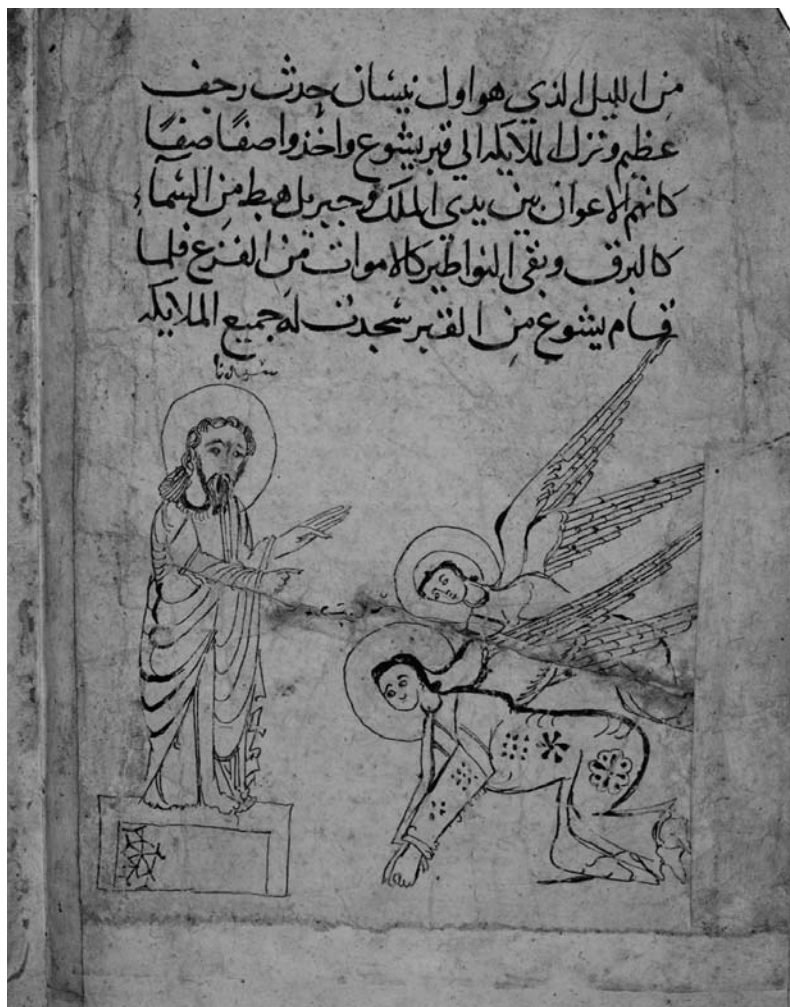 من الليل الذي هو اول نيسان حدث رجف
عظيم ونزل الملايكه الي قبر يشوع واخذوا صفًا صفًا
كانهم الاعوان بين يدي الملك وجبريل هبط من السمآء
كالبرق وبقي النواطير كالاموات من الفزع فلما
قام يشوع من القبر سجدت له جميع الملايكه